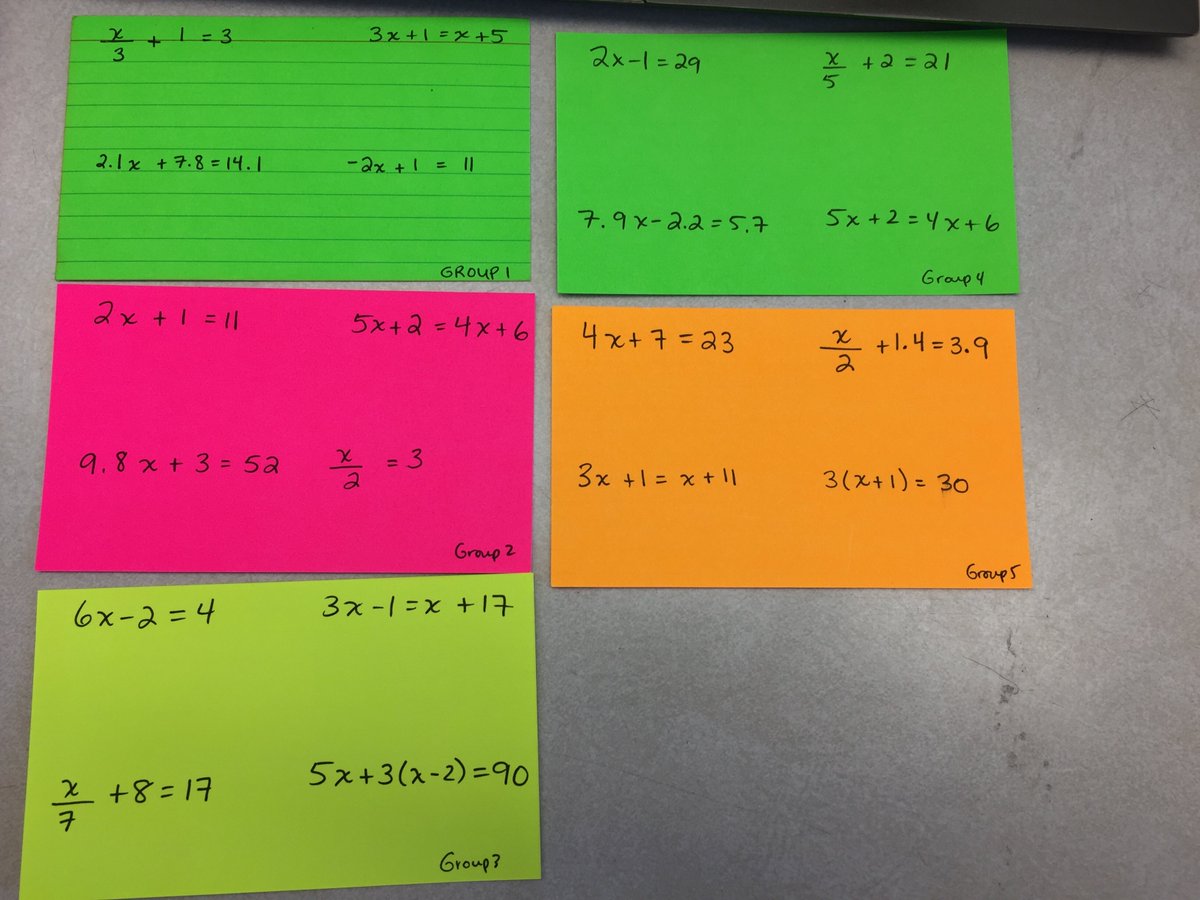 x/3 + 1 = 3
3x+1 = x+5
2.1x + 7.8 = 14.1
-2x + 1 = 11
GROUP 1
2x + 1 = 11
5x+2 = 4x+6
9.8x + 3 = 52
x/2 = 3
Group 2
6x-2 = 4
3x-1 = x +17
x/7 +8 = 17
5x+3(x-2)=90
Group 3
2x-1 = 29
x/5 +2 = 21
7.9x-2.2 = 5.7
5x+2 = 4x+6
Group 4
4x+7 = 23
x/2 +1.4 = 3.9
3x +1 = x+11
3(x+1) = 30
Group 5